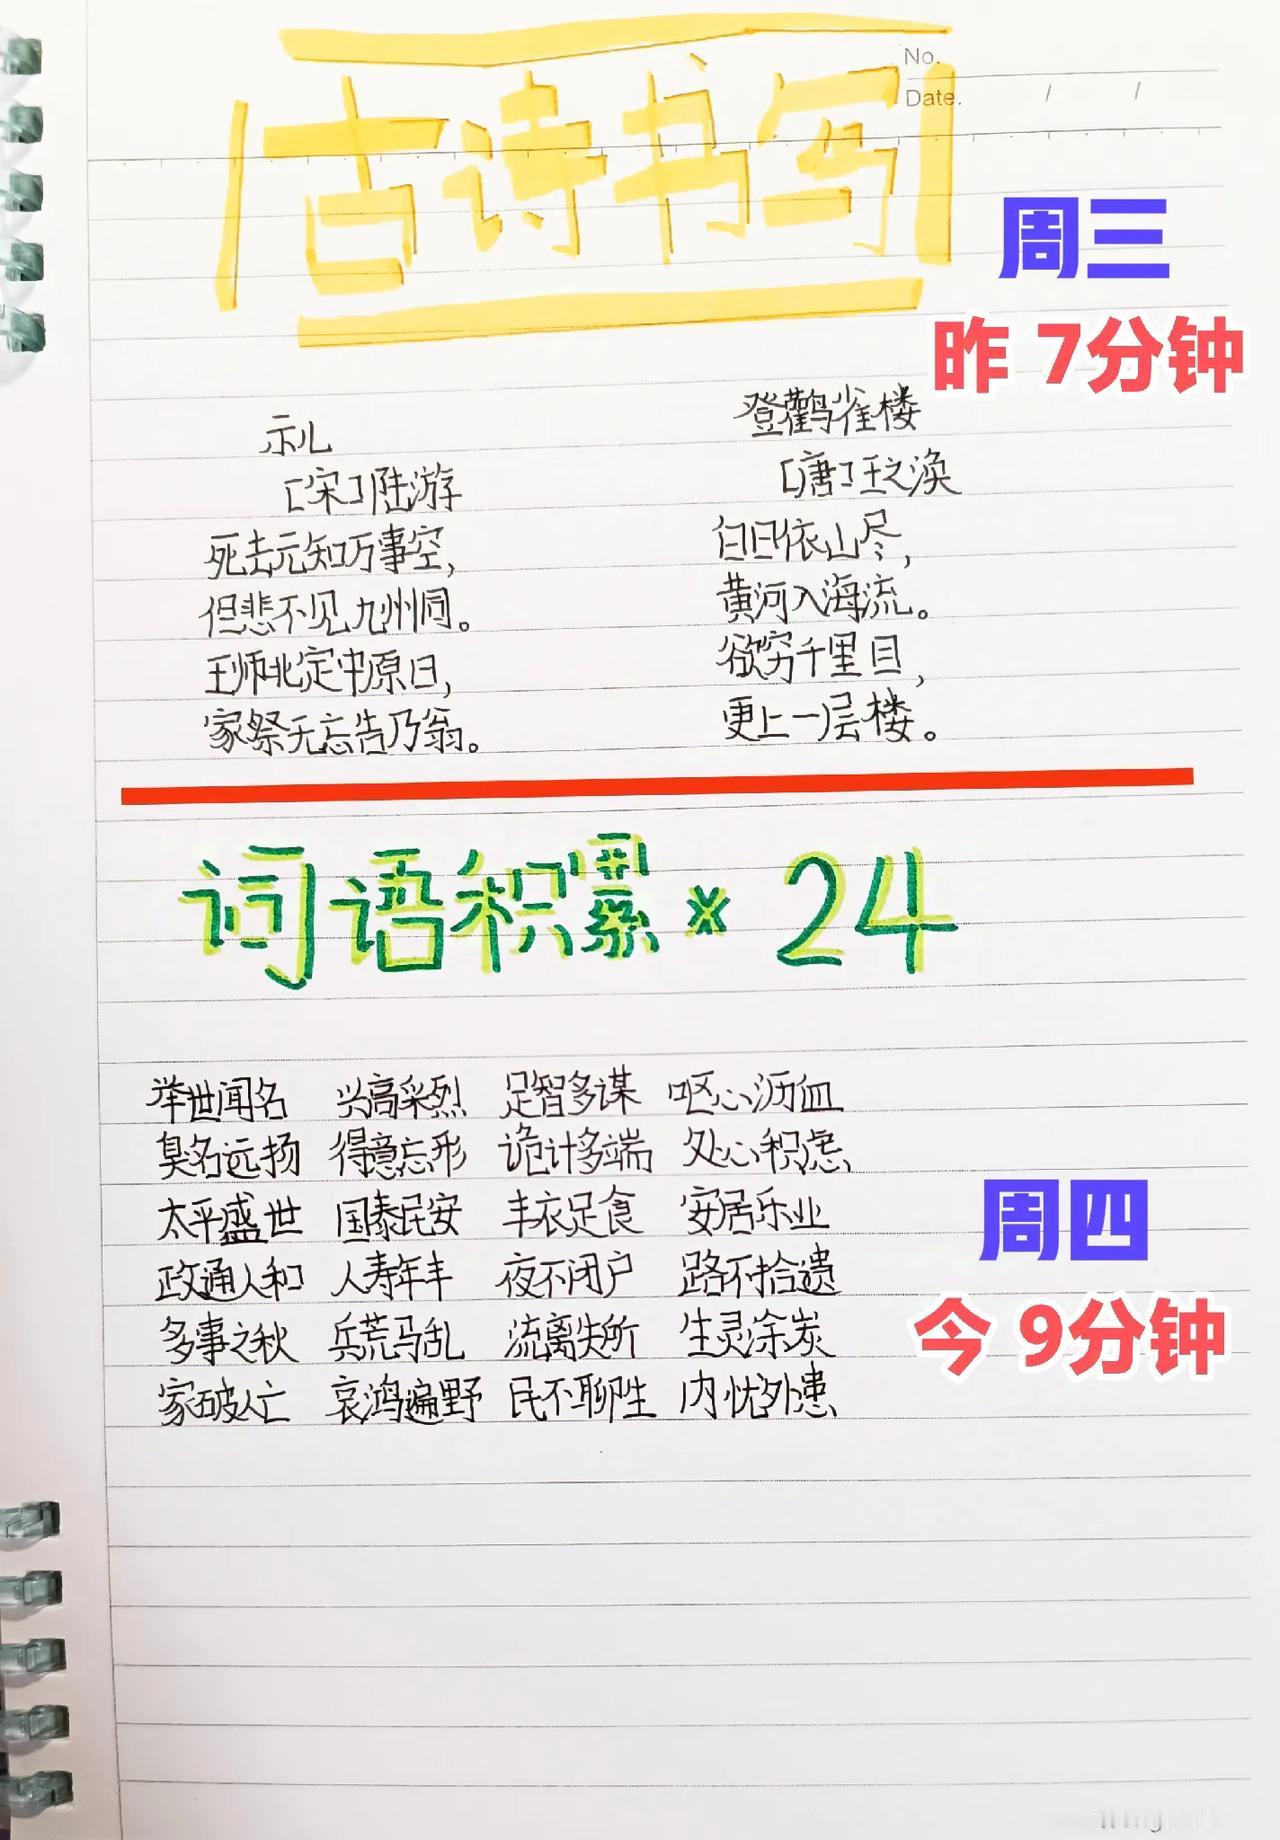 No.
Date. / /
古诗书写
周三
昨 7分钟
示儿
[宋]陆游
死去元知万事空,
但悲不见九州同。
王师北定中原日,
家祭无忘告乃翁。
登鹳雀楼
[唐]王之涣
白日依山尽,
黄河入海流。
欲穷千里目,
更上一层楼。
词语积累 × 24
举世闻名 兴高采烈 足智多谋 呕心沥血
臭名远扬 得意忘形 诡计多端 处心积虑
太平盛世 国泰民安 丰衣足食 安居乐业
政通人和 人寿年丰 夜不闭户 路不拾遗
多事之秋 兵荒马乱 流离失所 生灵涂炭
家破人亡 哀鸿遍野 民不聊生 内忧外患
周四
今 9分钟